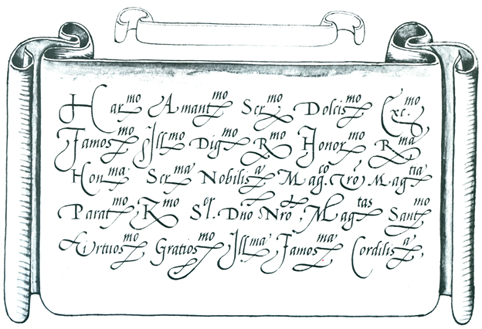 Har^mo Amant^mo Ser^mo Dolcis^mo Exc.^mo
Famos^mo Ill^mo Dig^mo R^mo Honor^mo R^ma
Hon^ma Ser^ma Nobilis^a Mag.^co Nrō Mag^tia
Parat^mo K^mo S^ol. Dnō Nrō. Mag^tas Sant^mo
Virtuos^mo Gratios^mo Ill^ma Famos^ma Cordilis^a